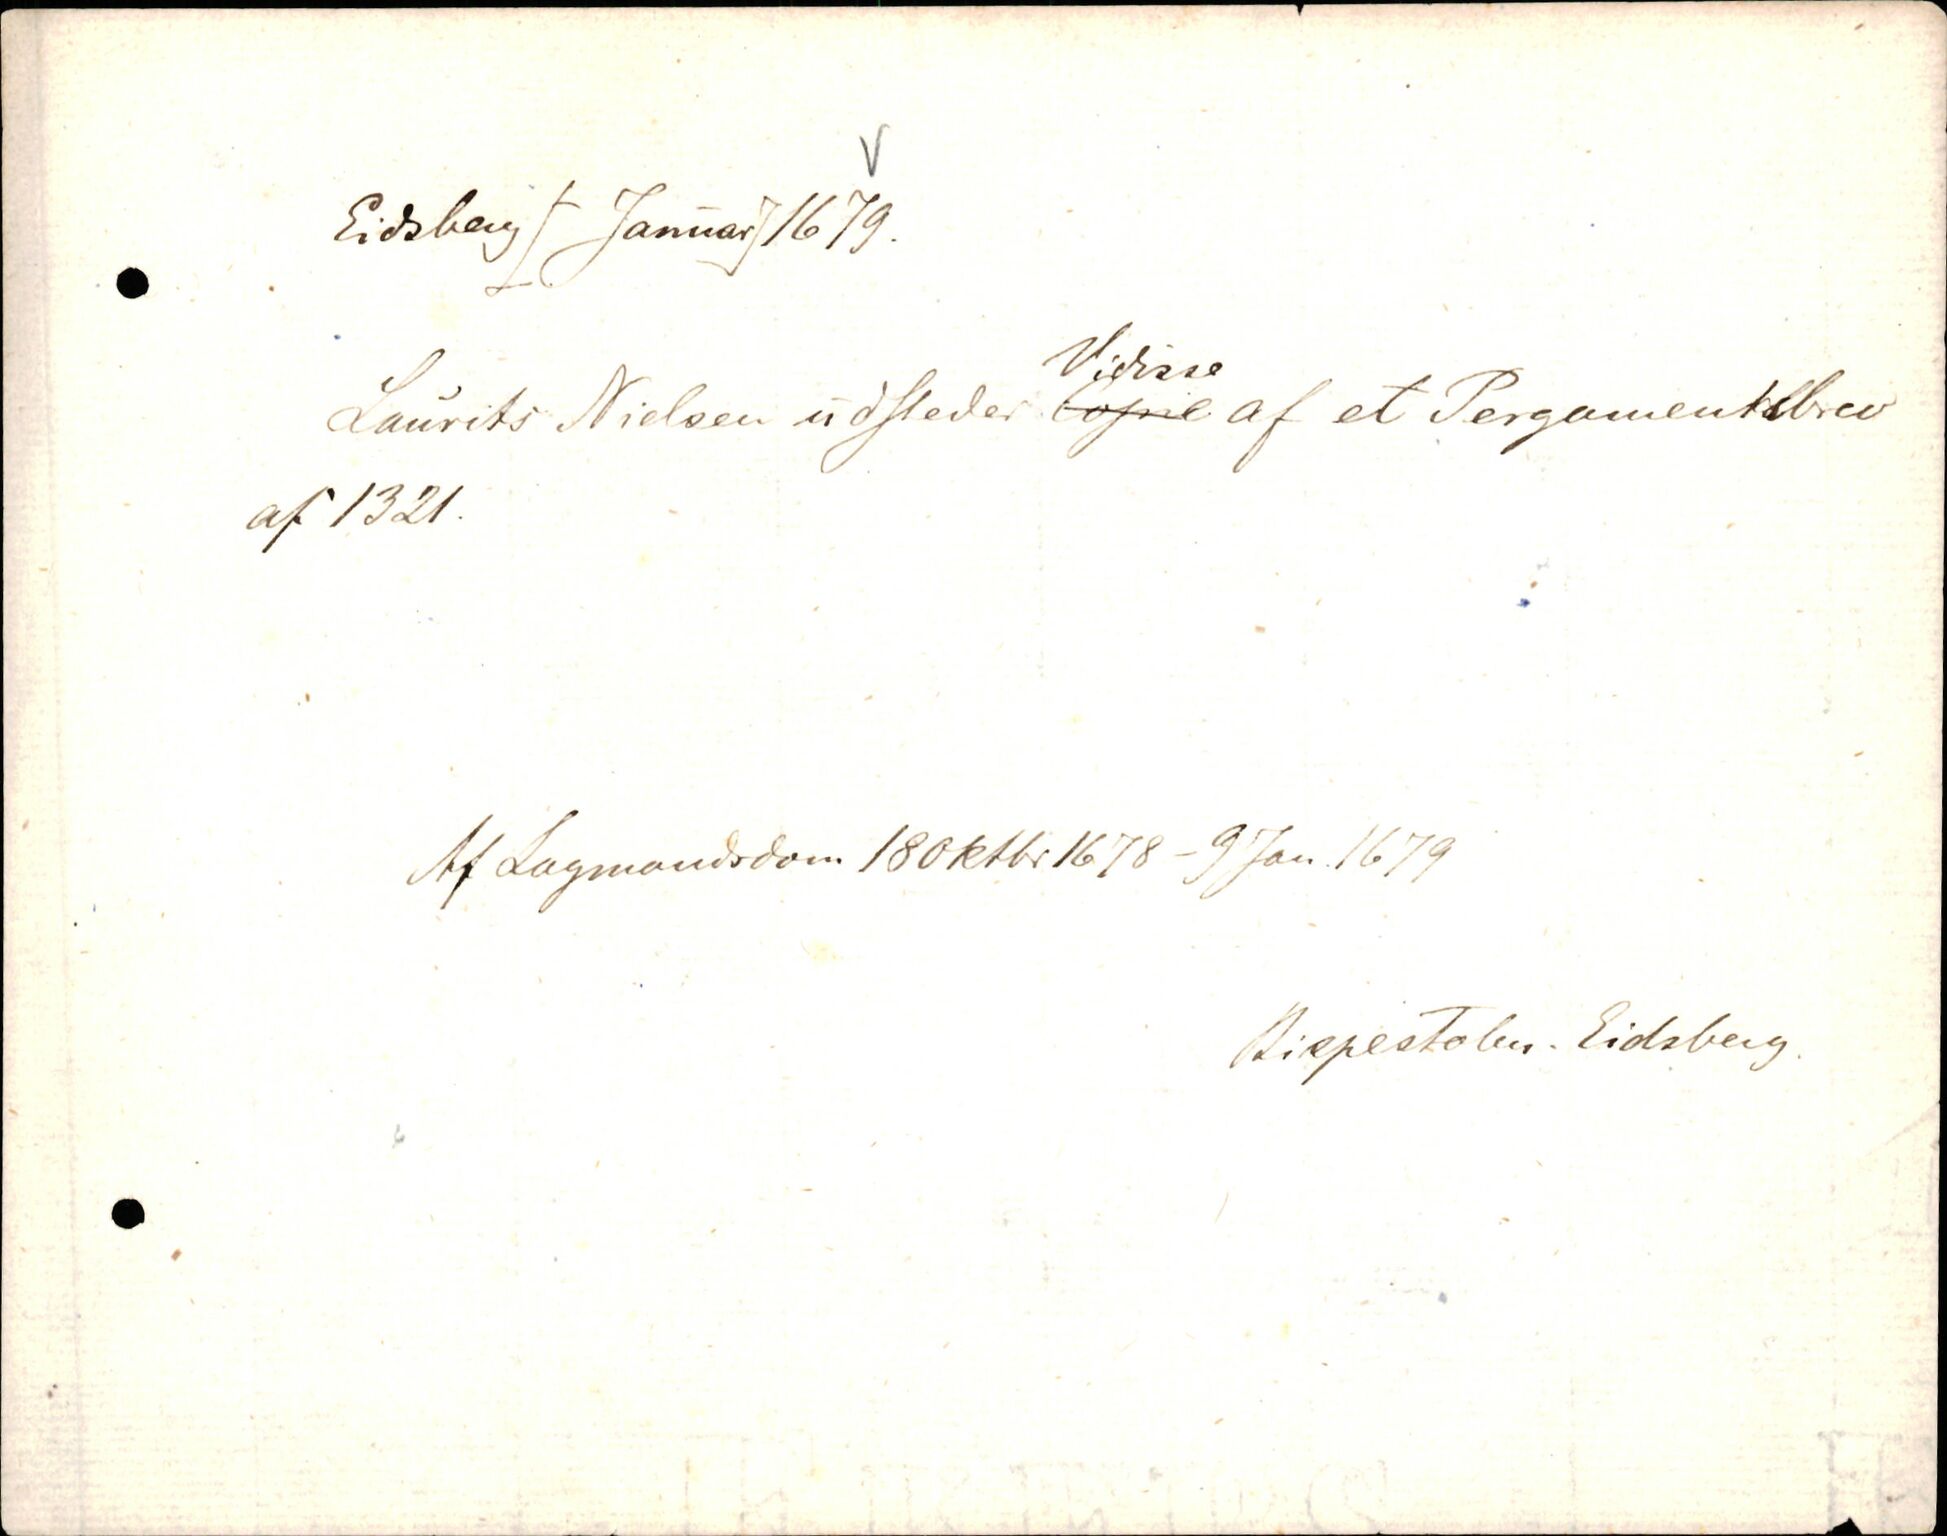 V
Eidsberg [ Januar] 1679.
Vidisse
Laurits Nielsen udsteder Copie af et Pergamentsbrev
af 1321.
Af Lagmandsdom 18 Oktbr 1678 - 9 Jan. 1679
Bispestolen. Eidsberg.